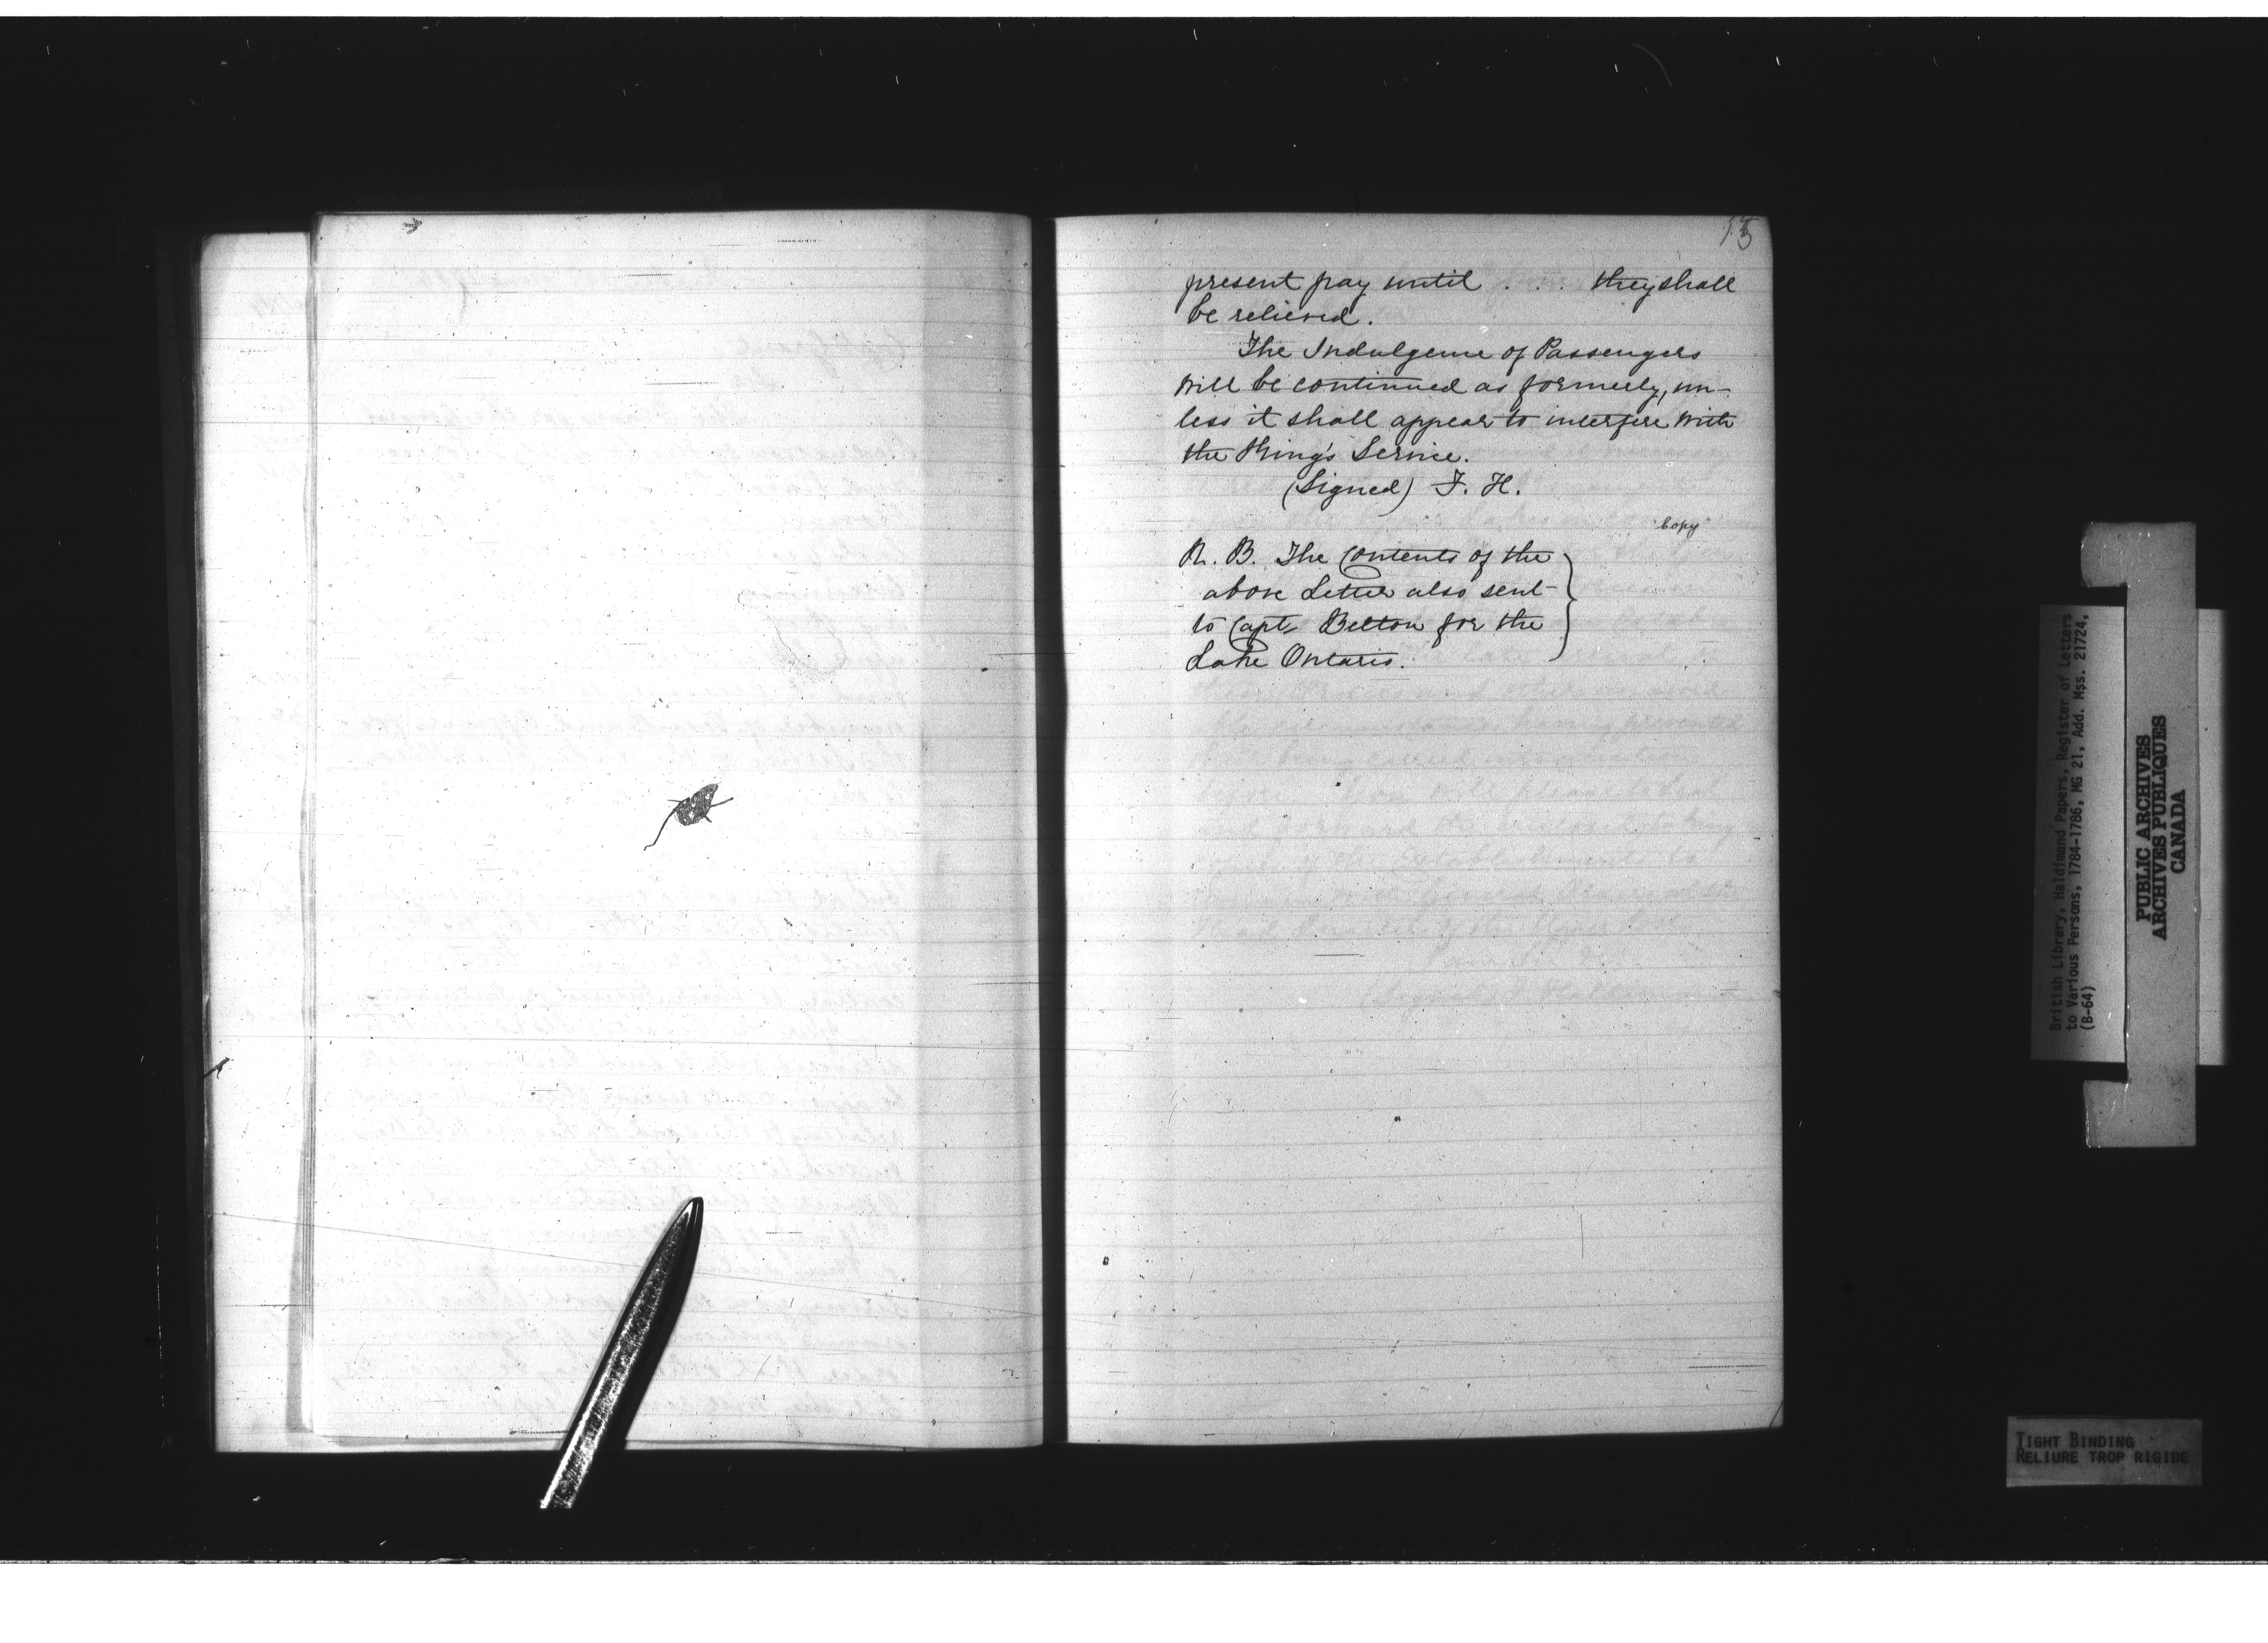 present pay until . . . they shall
be relieved.
The Indulgence of Passengers
will be continued as formerly, un-
less it shall appear to interfere with
the King's Service.
(Signed) F. H.
Copy
N. B. The Contents of the
above Letter also sent
to Capt. Betton for the
Lake Ontario.
British Library, Haldimand Papers, Register of Letters
to Various Persons, 1784-1786, MG 21, Add. Mss. 21724,
(B-64)
PUBLIC ARCHIVES
ARCHIVES PUBLIQUES
CANADA
TIGHT BINDING
RELIURE TROP RIGIDE